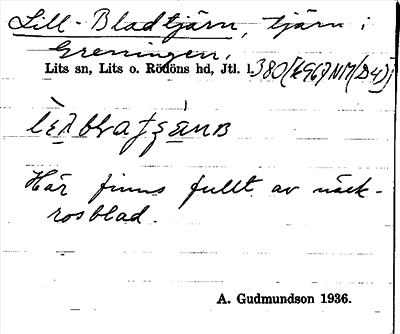 Lill-Bladtjärn, tjärn i
Greningen,
Lits sn, Lits o. Rödöns hd, Jtl. l. 380
Här finns fullt av näck-
rosblad.
A. Gudmundson 1936.